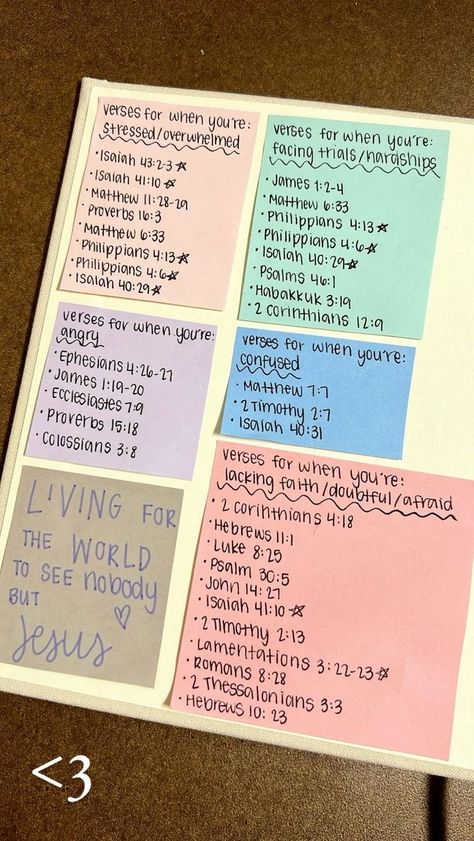 verses for when you're:
stressed/overwhelmed
• Isaiah 43:2-3 ☆
• Isaiah 41:10 ☆
• Matthew 11:28-29
• Proverbs 16:3
• Matthew 6:33
• Philippians 4:13 ☆
• Philippians 4:6 ☆
• Isaiah 40:29 ☆
verses for when you're:
facing trials/hardships
• James 1:2-4
• Matthew 6:33
• Philippians 4:13 ☆
• Philippians 4:6 ☆
• Isaiah 40:29 ☆
• Psalms 46:1
• Habakkuk 3:19
• 2 Corinthians 12:9
verses for when you're:
angry
• Ephesians 4:26-27
• James 1:19-20
• Ecclesiastes 7:9
• Proverbs 15:18
• Colossians 3:8
verses for when you're:
confused
• Matthew 7:7
• 2 Timothy 2:7
• Isaiah 40:31
LIVING FOR
THE WORLD
TO SEE nobody
BUT
Jesus
verses for when you're:
lacking faith/doubtful/afraid
• 2 Corinthians 4:18
• Hebrews 11:1
• Luke 8:25
• Psalm 30:5
• John 14:27
• Isaiah 41:10 ☆
• 2 Timothy 2:13
• Lamentations 3:22-23 ☆
• Romans 8:28
• 2 Thessalonians 3:3
• Hebrews 10:23
<3